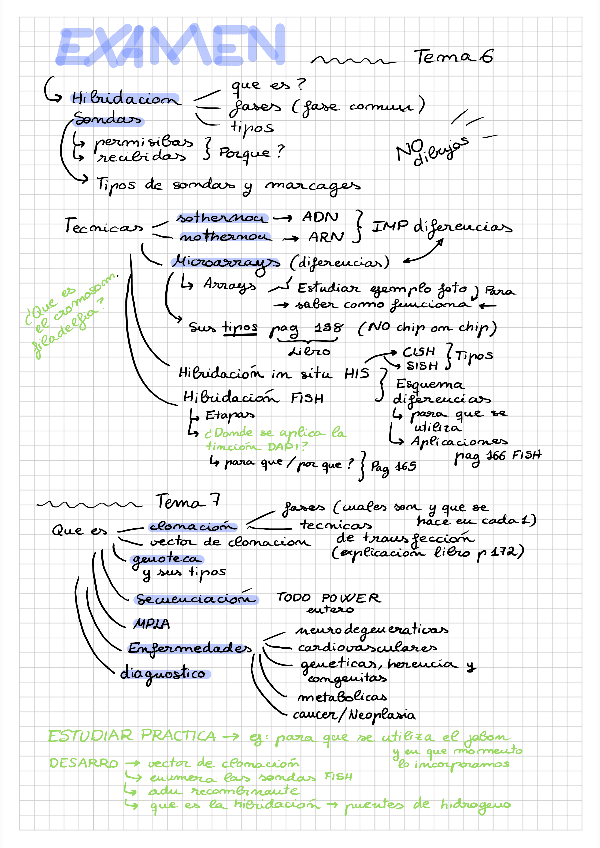 EXAMEN
Tema 6
Hibridacion
que es?
fases (fase comun)
tipos
Sondas
permisibas
recibidas
Porque?
NO dibujos
Tipos de sondas y marcages
Tecnicas
sothernou → ADN
nothernou → ARN
IMP diferencias
Microarrays (diferencias)
Arrays
Estudiar ejemplo foto
Para
→ saber como funciona ←
¿Que es
el cromosom.
filadelfia?
Sus tipos pag 158 (NO chip on chip)
Libro
Hibridación in situ HIS
CISH
SISH
Tipos
Hibridación FISH
Esquema
diferencias
para que se
utiliza
Aplicaciones
pag 166 FISH
Etapas
¿Donde se aplica la
tinción DAPI?
para que / por que?
Pag 165
Tema 7
Que es
clonación
fases (cuales son y que se
hace en cada 1)
tecnicas
de transfección
(explicación libro p 172)
vector de clonacion
genoteca
y sus tipos
Secuenciación TODO POWER
entero
MPLA
Enfermedades
neurodegenerativas
cardiovasculares
geneticas, herencia y
congenitas
metabolicas
cancer/Neoplasia
diagnostico
ESTUDIAR PRACTICA → ej: para que se utiliza el jabon
y en que momento
lo incorporamos
DESARRO → vector de clonación
enumera las sondas FISH
adn recombinante
que es la hibridación → puentes de hidrogeno